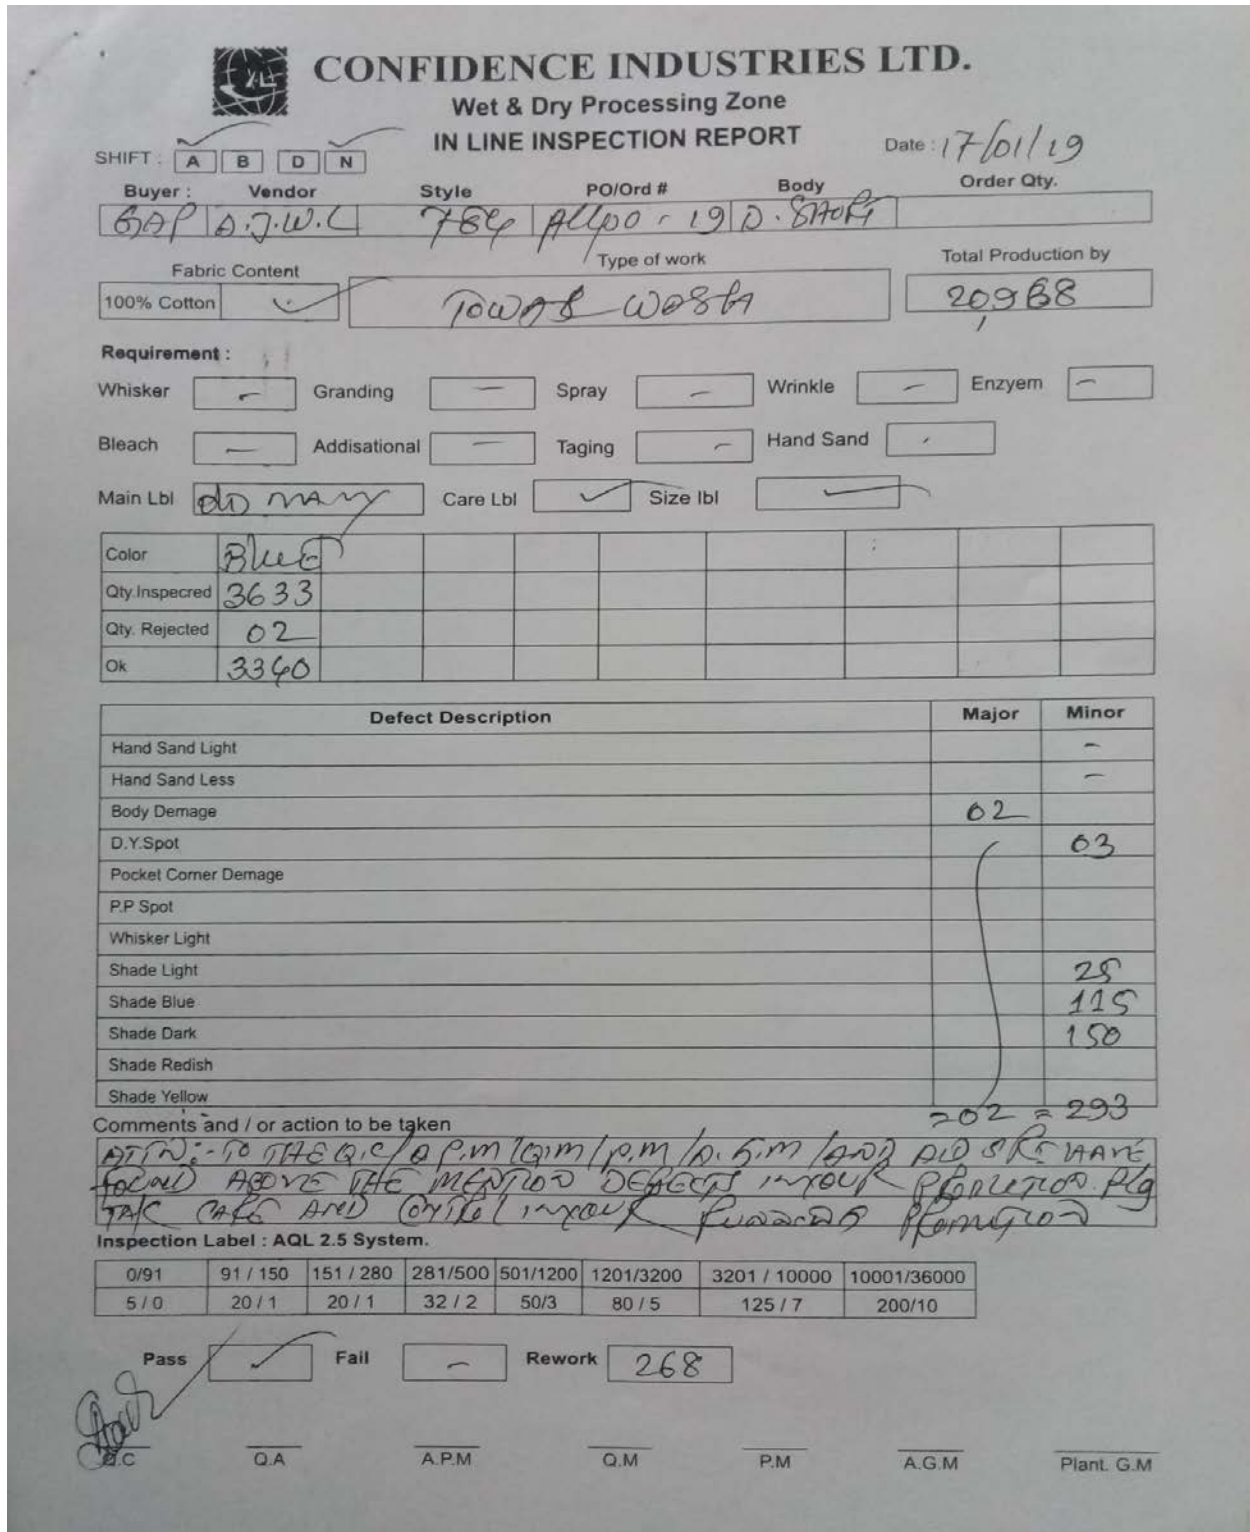 CONFIDENCE INDUSTRIES LTD.
Wet & Dry Processing Zone
IN LINE INSPECTION REPORT
SHIFT : A B D N
Date : 17/01/19
Buyer : Vendor Style PO/Ord # Body Order Qty.
GAP A.J.W.L 784 19 D. SHORT
Fabric Content Type of work Total Production by
100% Cotton WOSH 20,968
Requirement :
Whisker - Granding - Spray - Wrinkle - Enzyem -
Bleach - Addisational - Taging - Hand Sand
Main Lbl OLD NAVY Care Lbl Size lbl
Color BLUE
Qty.Inspecred 3633
Qty. Rejected 02
Ok 3340
Defect Description Major Minor
Hand Sand Light -
Hand Sand Less -
Body Demage 02
D.Y.Spot 03
Pocket Corner Demage
P.P Spot
Whisker Light
Shade Light 25
Shade Blue 115
Shade Dark 150
Shade Redish
Shade Yellow
02 = 293
Comments and / or action to be taken
ATTN:- TO THE Q.C/A.P.M/Q.M/P.M/A.G.M/AND HAVE
FOUND ABOVE THE MENTION DEFECTS IN YOUR
CARE AND IN YOUR
Inspection Label : AQL 2.5 System.
0/91 91 / 150 151 / 280 281/500 501/1200 1201/3200 3201 / 10000 10001/36000
5 / 0 20 / 1 20 / 1 32 / 2 50/3 80 / 5 125 / 7 200/10
Pass Fail - Rework 268
Q.C Q.A A.P.M Q.M P.M A.G.M Plant. G.M